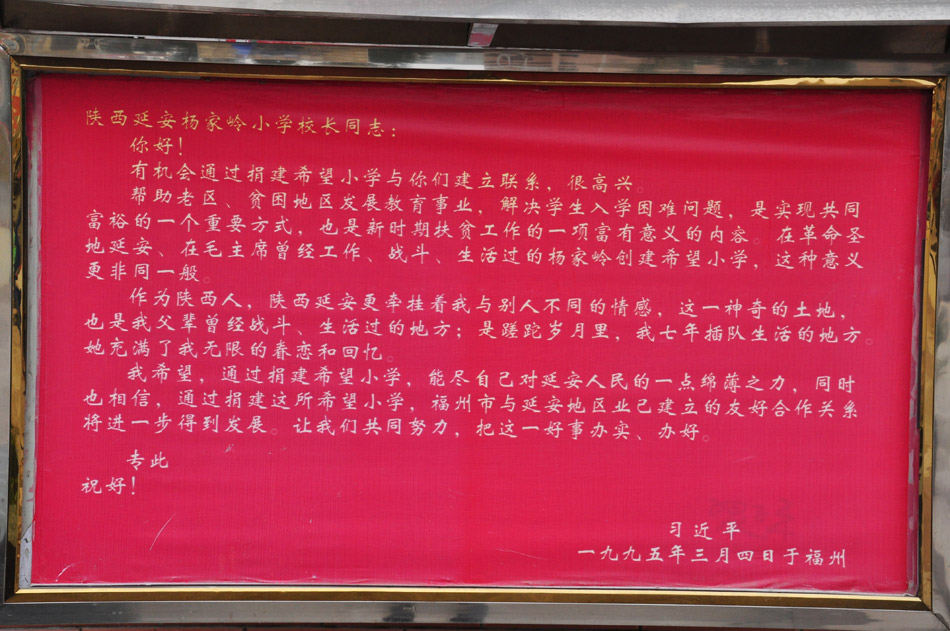 陕西延安杨家岭小学校长同志：
你好！
有机会通过捐建希望小学与你们建立联系，很高兴。
帮助老区、贫困地区发展教育事业，解决学生入学困难问题，是实现共同
富裕的一个重要方式，也是新时期扶贫工作的一项富有意义的内容。在革命圣
地延安、在毛主席曾经工作、战斗、生活过的杨家岭创建希望小学，这种意义
更非同一般。
作为陕西人，陕西延安更牵挂着我与别人不同的情感，这一神奇的土地，
也是我父辈曾经战斗、生活过的地方；是蹉跎岁月里，我七年插队生活的地方。
她充满了我无限的眷恋和回忆。
我希望，通过捐建希望小学，能尽自己对延安人民的一点绵薄之力，同时
也相信，通过捐建这所希望小学，福州市与延安地区业已建立的友好合作关系
将进一步得到发展。让我们共同努力，把这一好事办实、办好。
专此
祝好！
习近平
一九九五年三月四日于福州